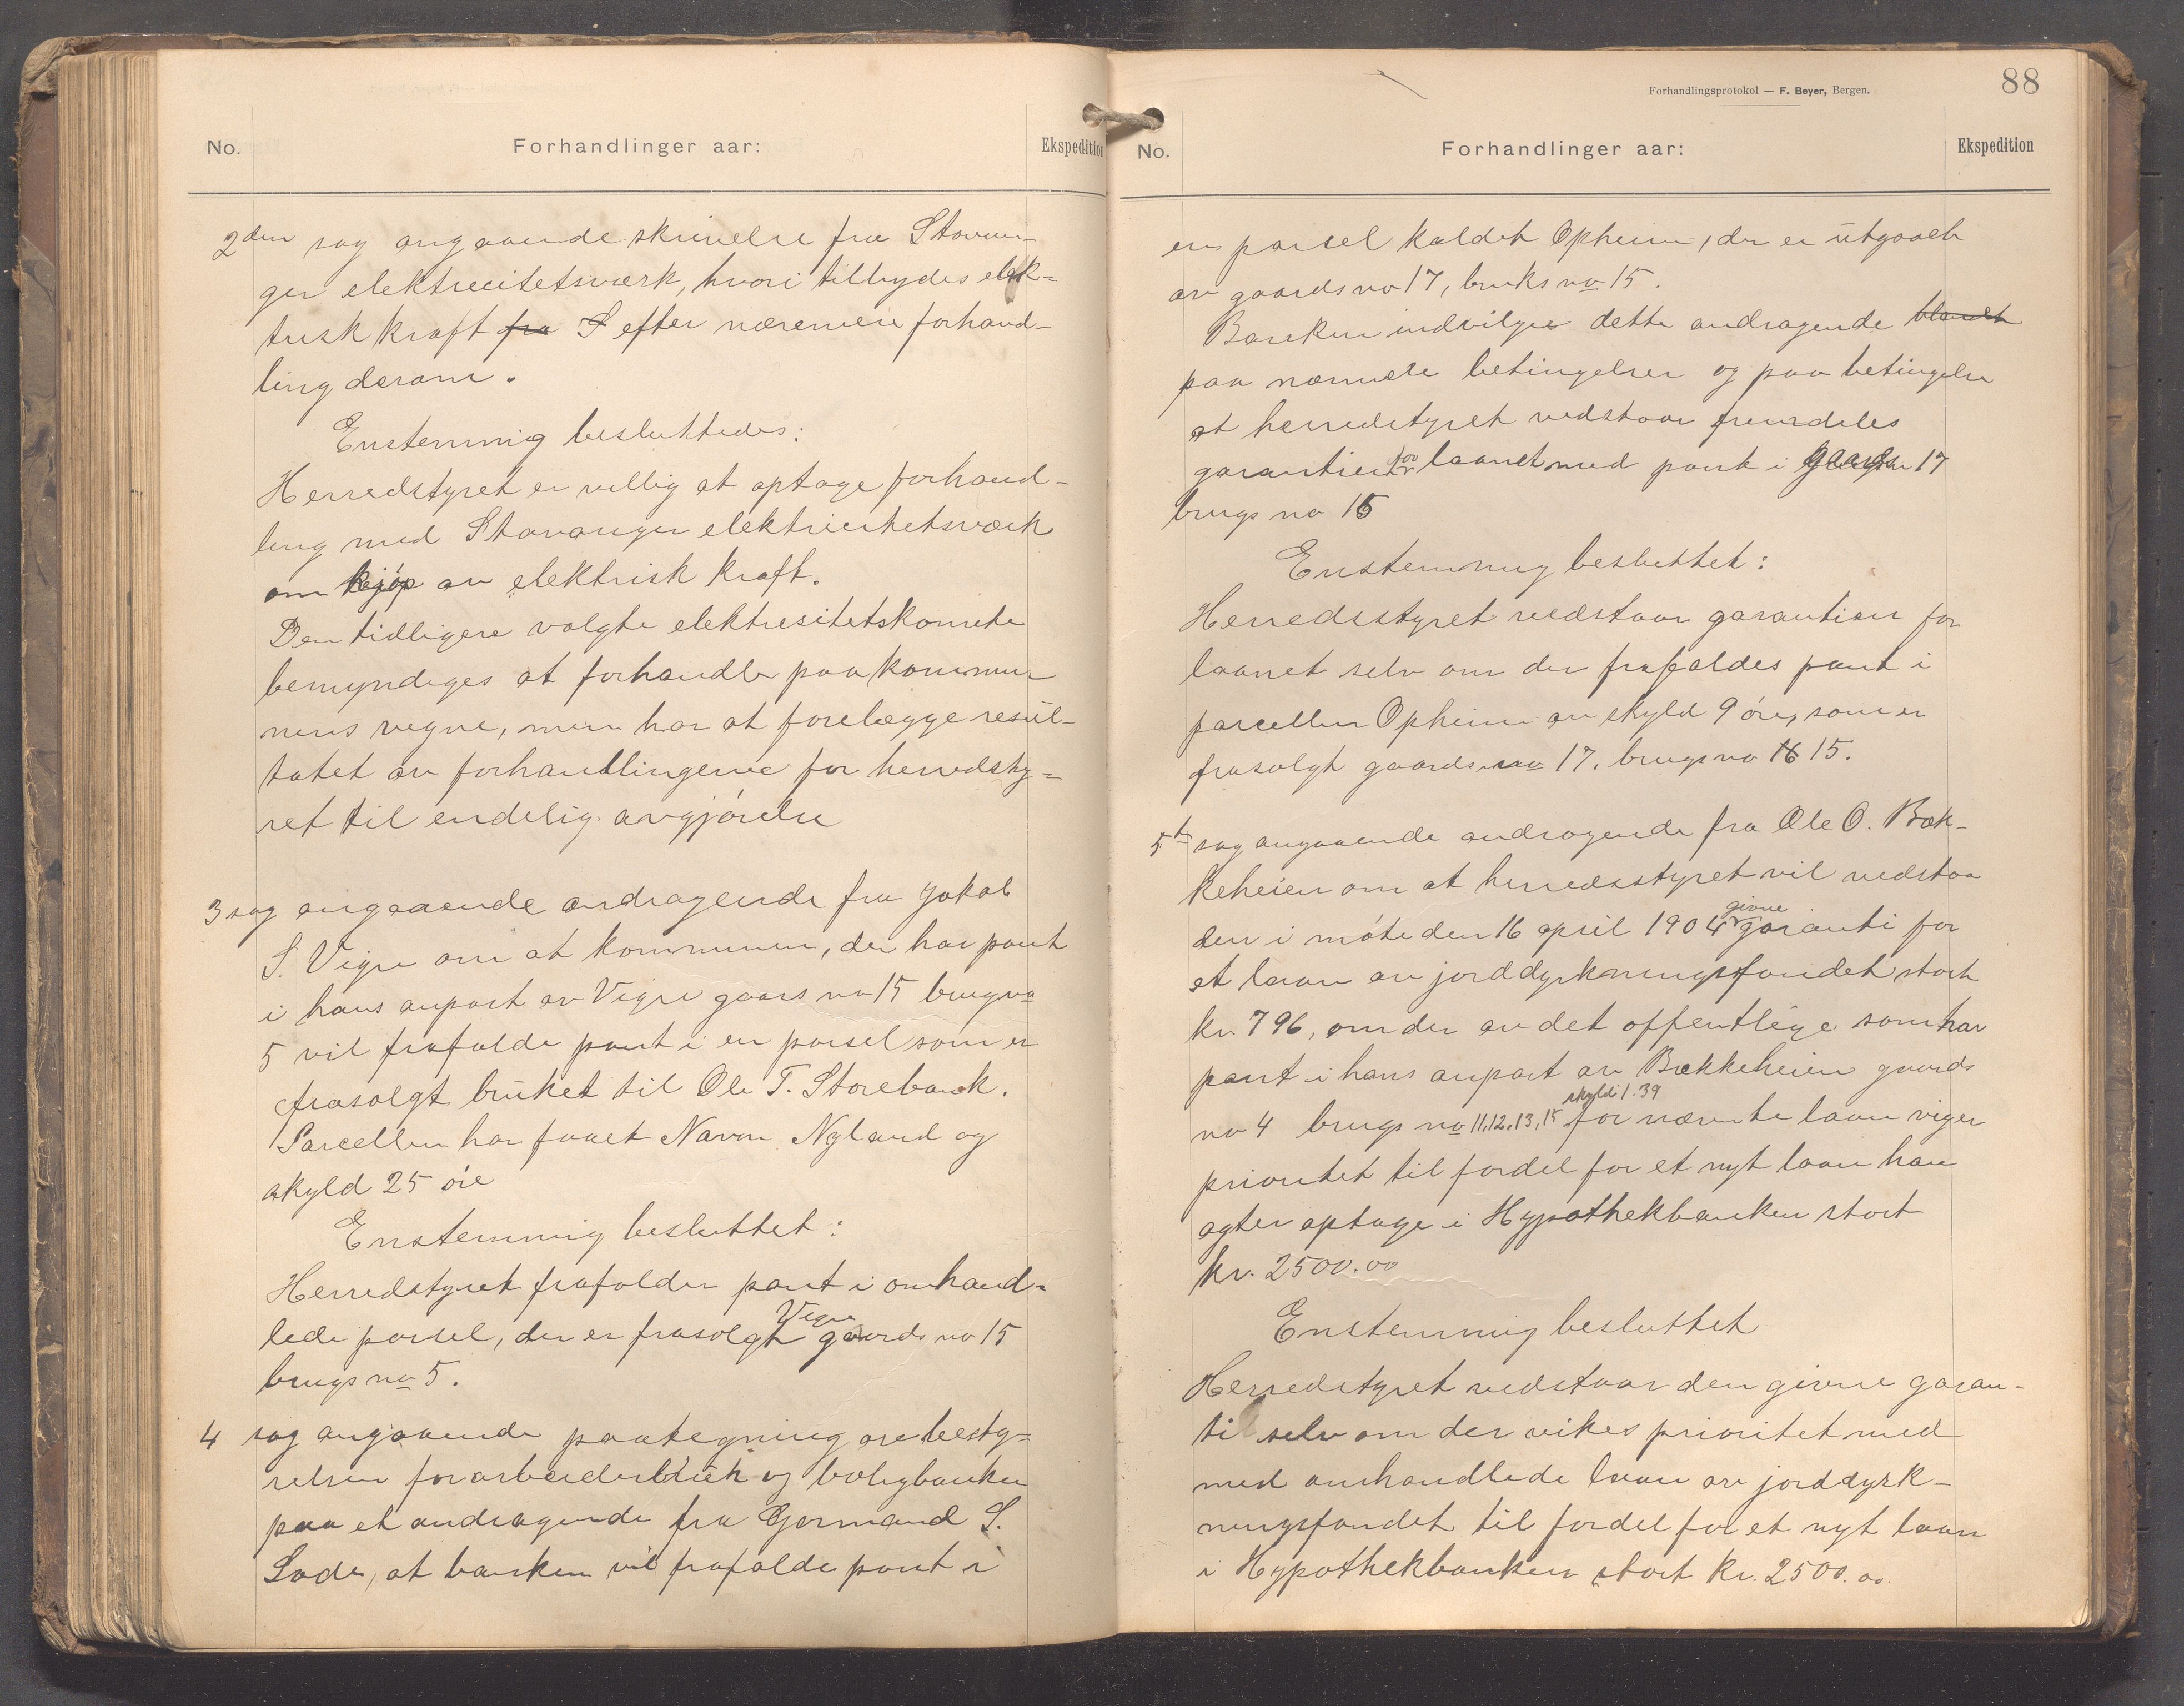 No.
Forhandlinger aar:
Ekspedition
2den sag angaaende skrivelse fra Stavan-
ger elektricitetsværk, hvori tilbydes elek-
trisk kraft fra S efter nærmere forhand-
ling derom.
Enstemmig besluttedes:
Herredstyret er villig at optage forhand-
ling med Stavanger elektricitetsværk
om kjøp av elektrisk kraft.
Den tidligere valgte elektresitetskomite
bemyndiges at forhandle paa kommu-
nens vegne, men har at forelægge resul-
tatet av forhandlingerne for herredsty-
ret til endelig avgjørelse
3 sag angaaende andragende fra Jakob
S. Vigre om at kommunen, der har pant
i hans anpart av Vigre gaars no 15 brugno
5 vil frafalde pant i en parsel som er
frasolgt bruket til Ole T. Storebark.
Parcellen har faaet Navn Nyland og
skyld 25 øre
Enstemmig besluttet:
Herredstyret frafalder pant i omhand-
lede parsel, der er frasolgt Vigre gaards no 15
brugs no 5.
4 sag angaaende paategning av besty-
relsen for arbeiderbruk og boligbanken
paa et andragende fra Gormand S.
Lode, at banken vil frafalde pant i
Forhandlingsprotokol — F. Beyer, Bergen.
88
No.
Forhandlinger aar:
Ekspedition
en parsel kaldet Opheim, der er utgaaet
av gaards no 17, bruks no 15.
Banken indvilger dette andragende blandt
paa nærmere betingelser og paa betingelse
at herredstyret vedstaar fremdeles
garantien for laanet med pant i gaards 17
brugs no 15
Enstemmig besluttet:
Herredsstyret vedstaar garantien for
laanet selv om der frafaldes pant i
parcellen Opheim av skyld 9 øre, som er
frasolgt gaards no 17. brugs no 16 15.
5te sag angaaende andragende fra Ole O. Bæk-
keheien om at herredsstyret vil vedstaa
den i møte den 16 april 1904 givne garanti for
et laan av jorddyrkningsfondet stort
kr. 796, om der av det offentlige som har
pant i hans anpart av Bækkeheien gaards
no 4 brugs no 11.12.13,15 skyld 1.39 for nævnte laan viger
prioritet til fordel for et nyt laan han
agter optage i Hypothekbanken stort
kr. 2500.00
Enstemmig besluttet
Herredstyret vedstaar den givne garan-
ti selv om der vikes prioritet med
med omhandlede laan av jorddyrk-
ningsfondet til fordel for et nyt laan
i Hypothekbanken stort kr. 2500.00.